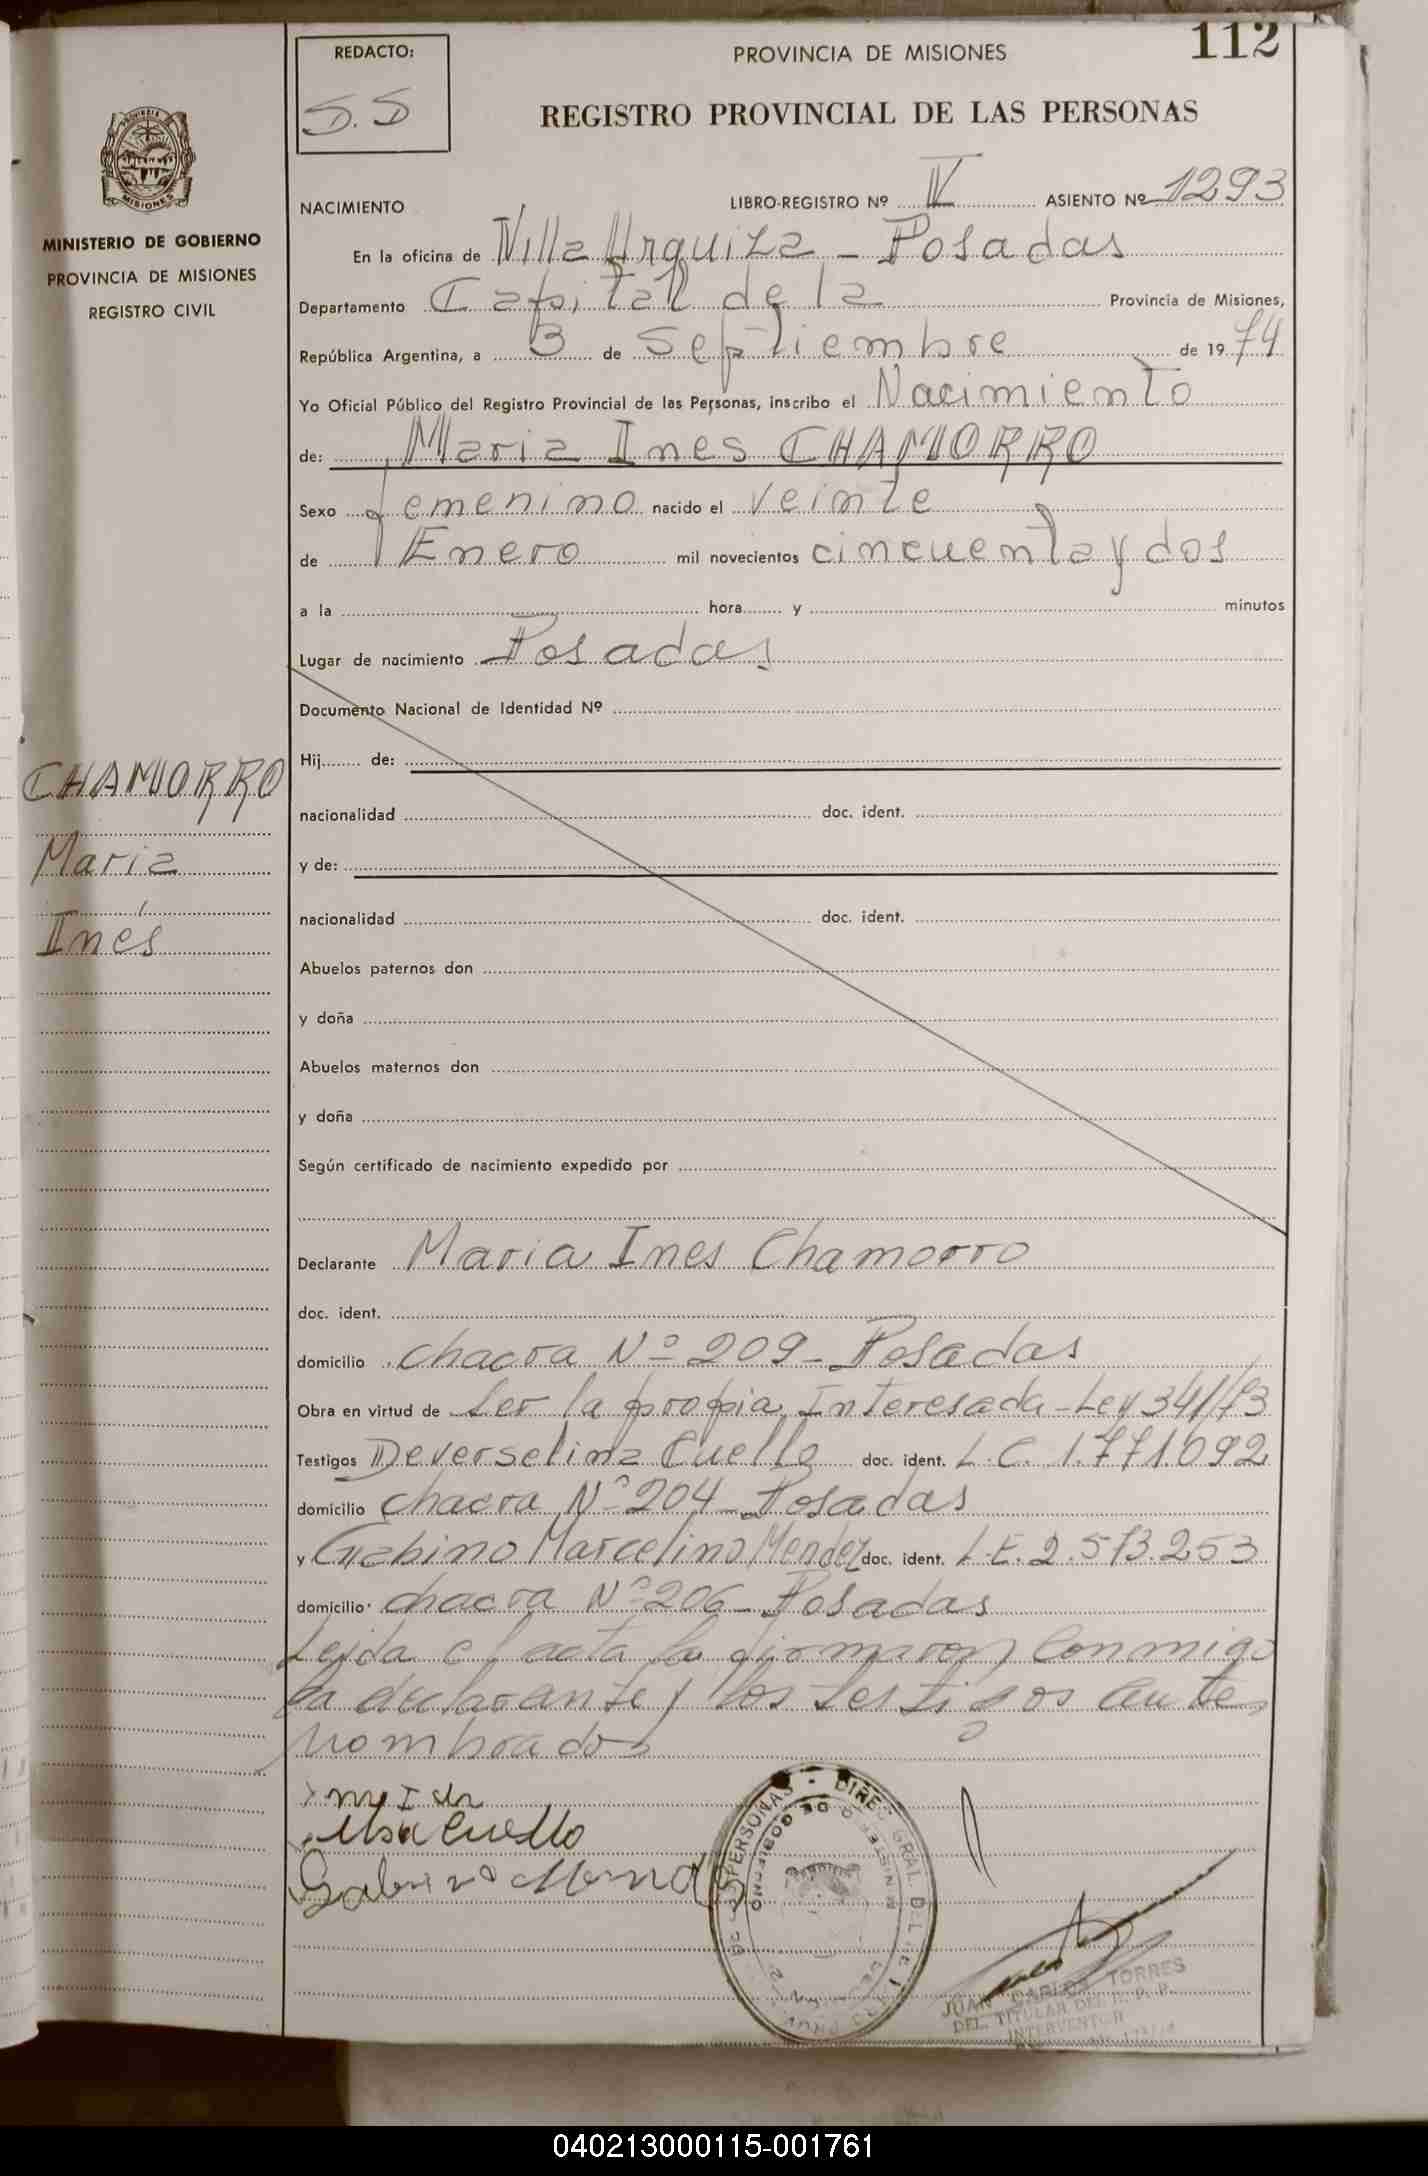 112
REDACTO:
S.S
PROVINCIA DE MISIONES
REGISTRO PROVINCIAL DE LAS PERSONAS
MISIONES
MINISTERIO DE GOBIERNO
PROVINCIA DE MISIONES
REGISTRO CIVIL
CHAMORRO
Maria
Inés
NACIMIENTO LIBRO-REGISTRO Nº IV ASIENTO Nº 1293
En la oficina de Villa Urquiza - Posadas
Departamento Capital de la Provincia de Misiones,
República Argentina, a 3 de Septiembre de 1974
Yo Oficial Público del Registro Provincial de las Personas, inscribo el Nacimiento
de: Maria Ines CHAMORRO
Sexo femenino nacido el veinte
de Enero mil novecientos cincuenta y dos
a la hora y minutos
Lugar de nacimiento Posadas
Documento Nacional de Identidad Nº
Hij de:
nacionalidad doc. ident.
y de:
nacionalidad doc. ident.
Abuelos paternos don
y doña
Abuelos maternos don
y doña
Según certificado de nacimiento expedido por
Declarante Maria Ines Chamorro
doc. ident.
domicilio chacra Nº 209 - Posadas
Obra en virtud de ser la propia Interesada - Ley 341/73
Testigos Deverselina Cuello doc. ident. L.C. 1.771.092
domicilio chacra Nº 204 - Posadas
y Gabino Marcelino Mendez doc. ident. L.E. 2.573.253
domicilio chacra Nº 206 - Posadas
Leida el acta la firmaron conmigo
la declarante y los testigos ante
nombrados
Cuello
JUAN CARLOS TORRES
DEL. TITULAR DEL R. P. P.
INTERVENTOR
040213000115-001761